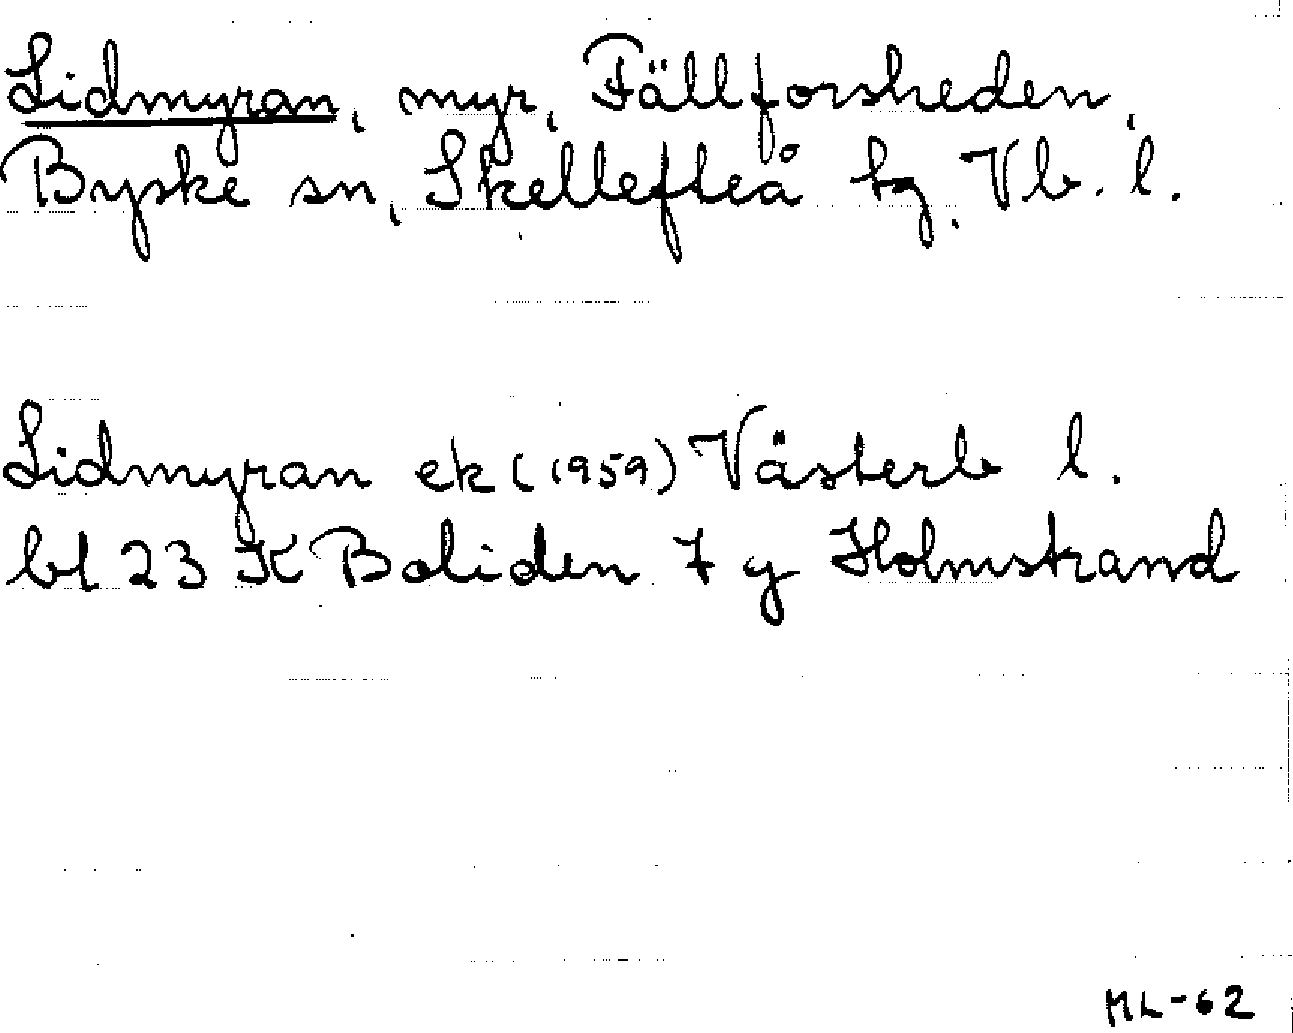 Lidmyran, myr, Fällforsheden,
Byske sn, Skellefteå tg, Vb. l.
Lidmyran ek (1959) Västerb l.
bl 23 K Boliden 7 g Holmstrand
ML-62